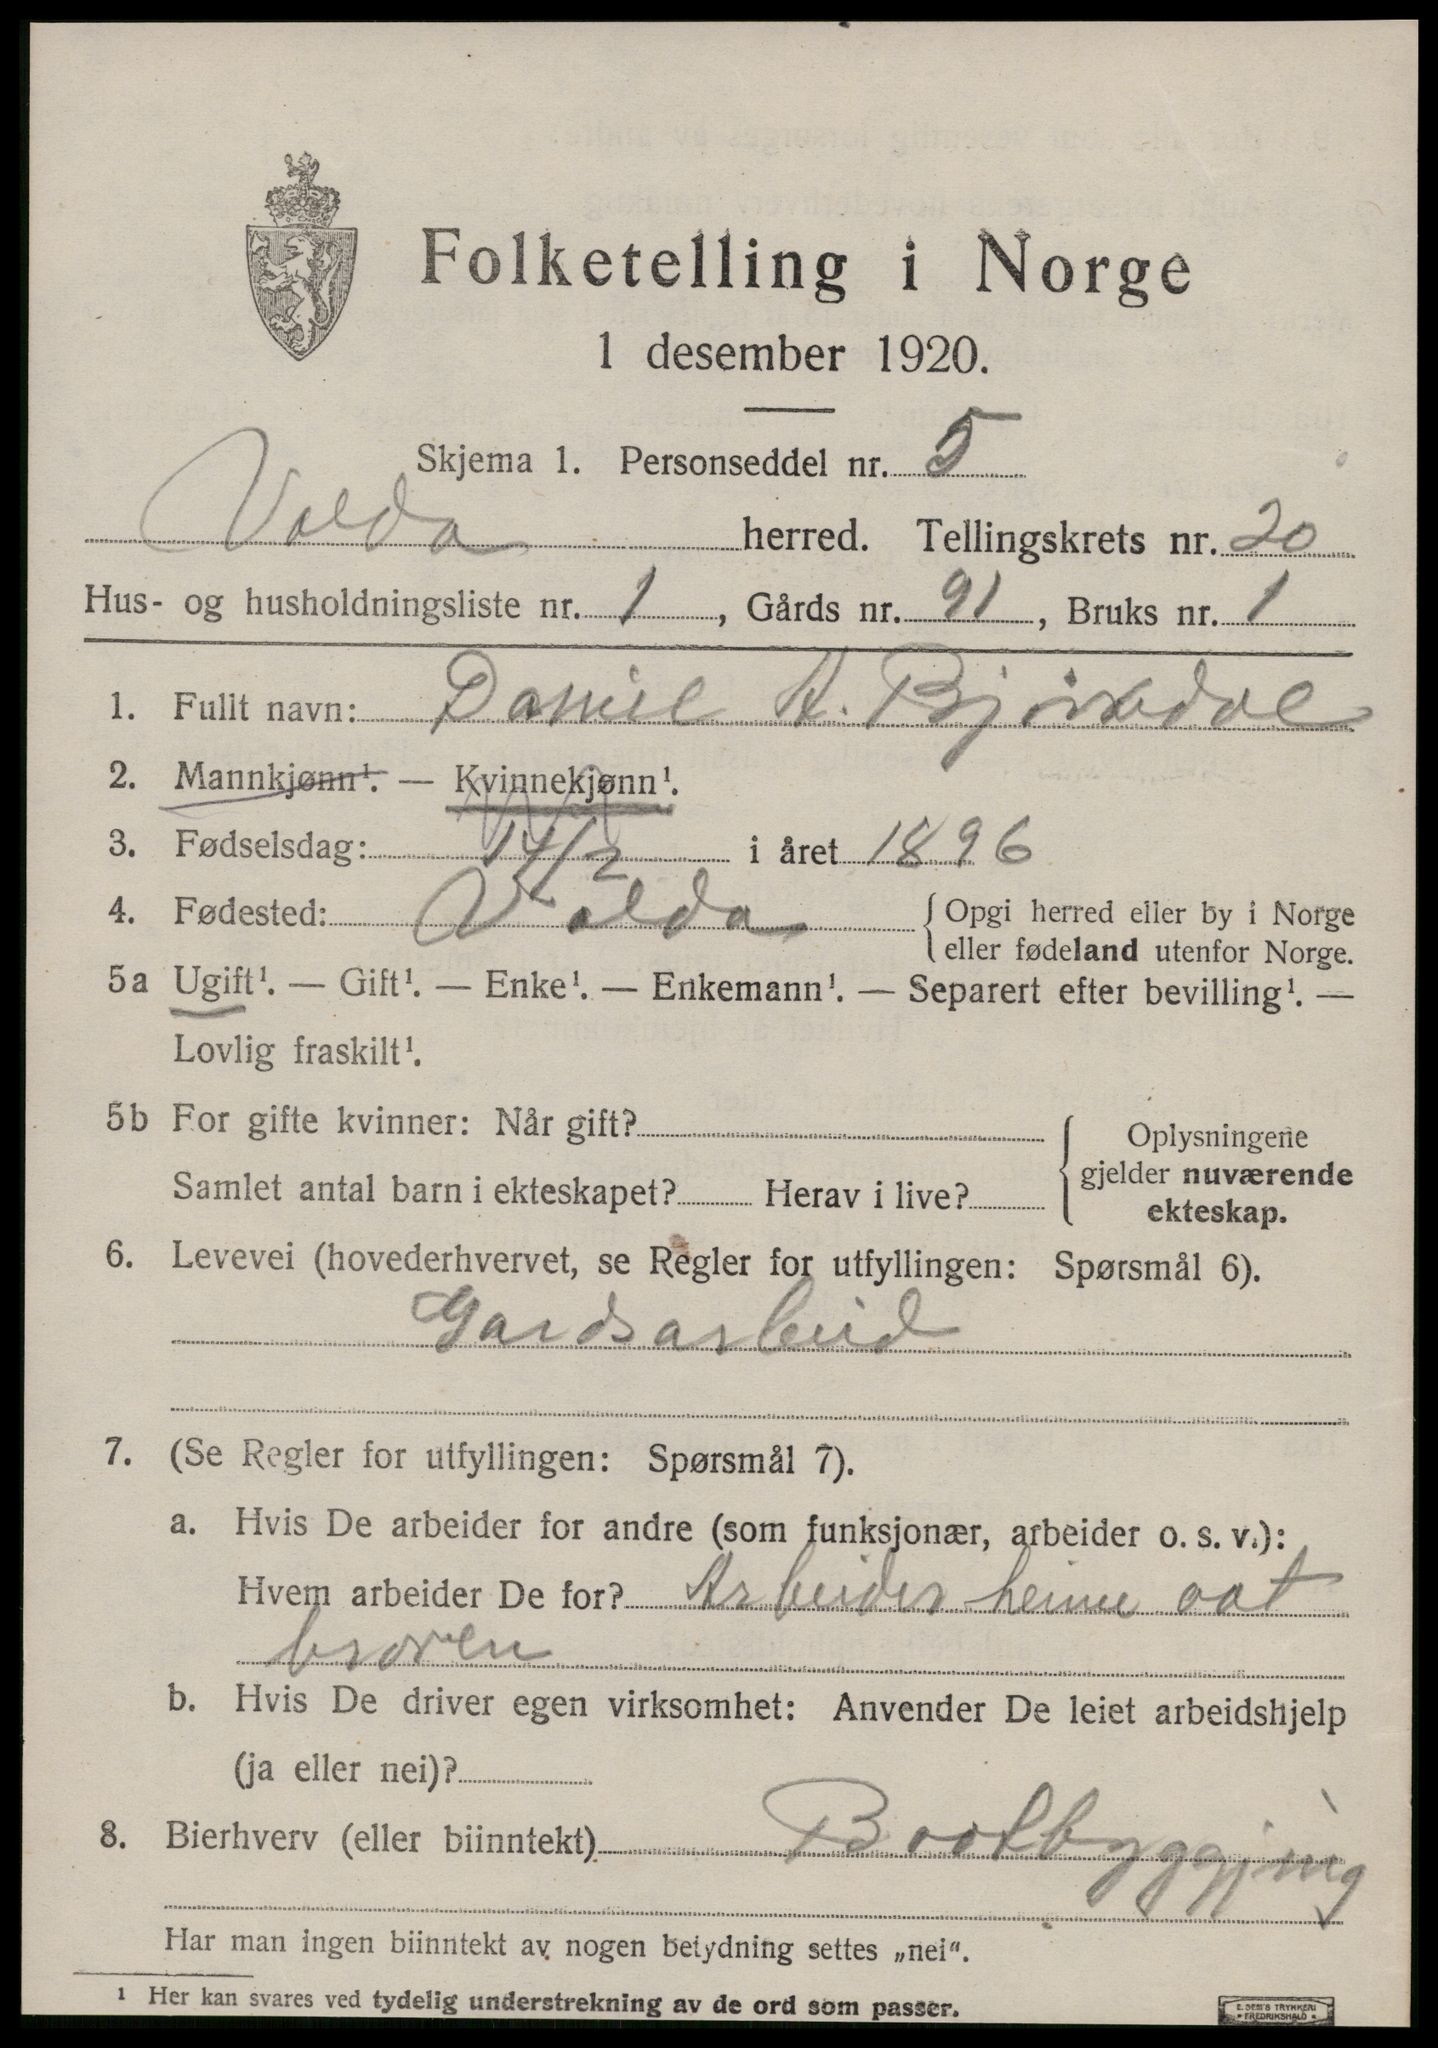 Folketelling i Norge
1 desember 1920.
Skjema 1. Personseddel nr. 5
Volda herred. Tellingskrets nr. 20
Hus- og husholdningsliste nr. 1, Gårds nr. 91, Bruks nr. 1
1. Fullt navn: Daniel A. Bjørkedal
2. Mannkjønn¹. — Kvinnekjønn¹.
3. Fødselsdag: 14/2 i året 1896
4. Fødested: Volda { Opgi herred eller by i Norge
eller fødeland utenfor Norge.
5a Ugift¹. — Gift¹. — Enke¹. — Enkemann¹. — Separert efter bevilling¹. —
Lovlig fraskilt¹.
5b For gifte kvinner: Når gift?
Samlet antal barn i ekteskapet? Herav i live?
Oplysningene
gjelder nuværende
ekteskap.
6. Levevei (hovederhvervet, se Regler for utfyllingen: Spørsmål 6).
Gardsarbeid
7. (Se Regler for utfyllingen: Spørsmål 7).
a. Hvis De arbeider for andre (som funksjonær, arbeider o. s. v.):
Hvem arbeider De for? Arbeider heime aat
broren
b. Hvis De driver egen virksomhet: Anvender De leiet arbeidshjelp
(ja eller nei)?
8. Bierhverv (eller biinntekt) Baatbyggjing
Har man ingen biinntekt av nogen betydning settes „nei“.
¹ Her kan svares ved tydelig understrekning av de ord som passer.
E. SEM'S TRYKKERI
FREDRIKSHALD